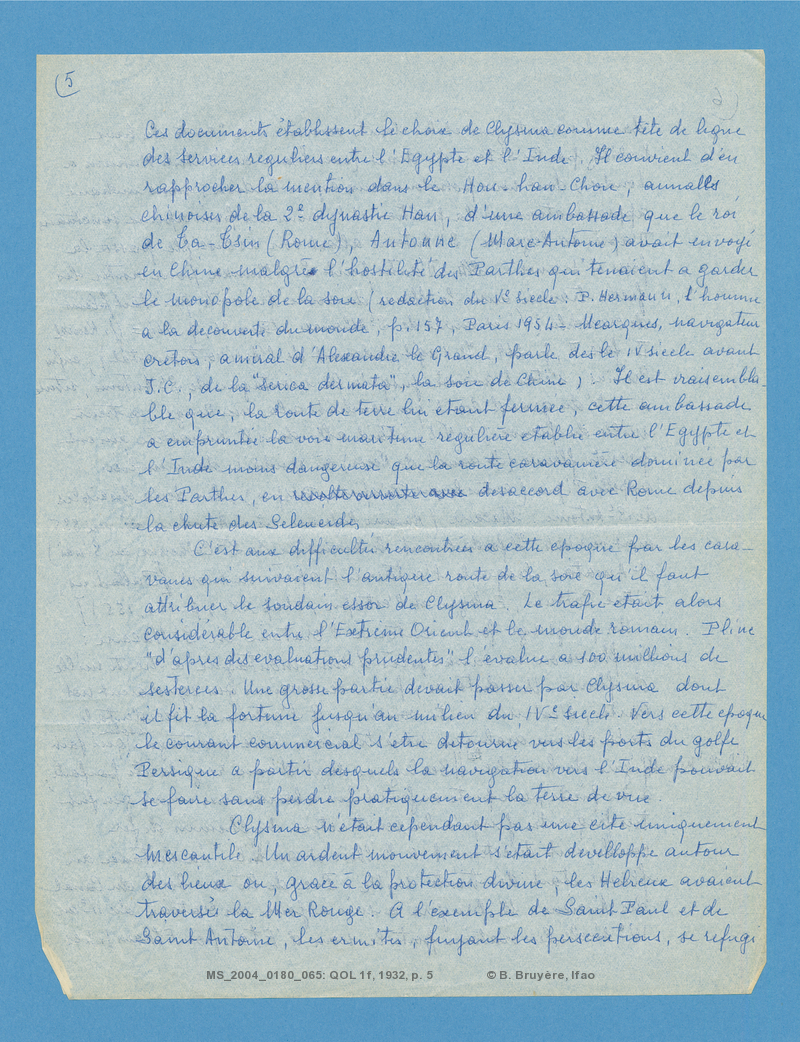 (5
Ces documents établissent le choix de Clysma comme tête de ligne
des services reguliers entre l'Egypte et l'Inde. Il convient d'en
rapprocher la mention dans le Hou-han-Chou, annales
chinoises de la 2e dynastie Han, d'une ambassade que le roi
de Ta-Tsin (Rome), Antonne (Marc-Antoine) avait envoyé
en Chine malgré l'hostilité des Parthes qui tenaient a garder
le monopole de la soie (redaction du Ve siecle : P. Hermann, l'homme
a la decouverte du monde, p. 157, Paris 1954 - Nearques, navigateur
cretois, amiral d'Alexandre le Grand, parle des le IV siecle avant
J.C., de la "Serica dermata", la soie de Chine). Il est vraisembla-
ble que, la route de terre lui etant fermée, cette ambassade
a empruntée la voie maritime reguliere etablie entre l'Egypte et
l'Inde moins dangereuse que la route caravanière dominée par
les Parthes, en desaccord avec Rome depuis
la chute des Seleucides,
C'est aux difficultés rencontrées a cette epoque par les cara-
vanes qui suivaient l'antique route de la soie qu'il faut
attribuer le soudain essor de Clysma. Le trafic etait alors
considérable entre l'Extreme Orient et le monde romain. Pline
"d'apres des evaluations prudentes" l'évalue a 100 millions de
sesterces. Une grosse partie devait passer par Clysma dont
il fit la fortune jusqu'au milieu du IVe siecle. Vers cette epoque
le courant commercial s'etre detourné vers les ports du golfe
Persique a partir desquels la navigation vers l'Inde pouvait
se faire sans perdre pratiquement la terre de vue.
Clysma n'était cependant pas une cité uniquement
mercantile. Un ardent mouvement s'était developpé autour
des lieux ou, grace à la protection divine, les Hebreux avaient
traversé la Mer Rouge. A l'exemple de Saint Paul et de
Saint Antoine, les ermites, fuyant les persecutions, se refugi
MS_2004_0180_065: QOL 1f, 1932, p. 5 © B. Bruyère, Ifao